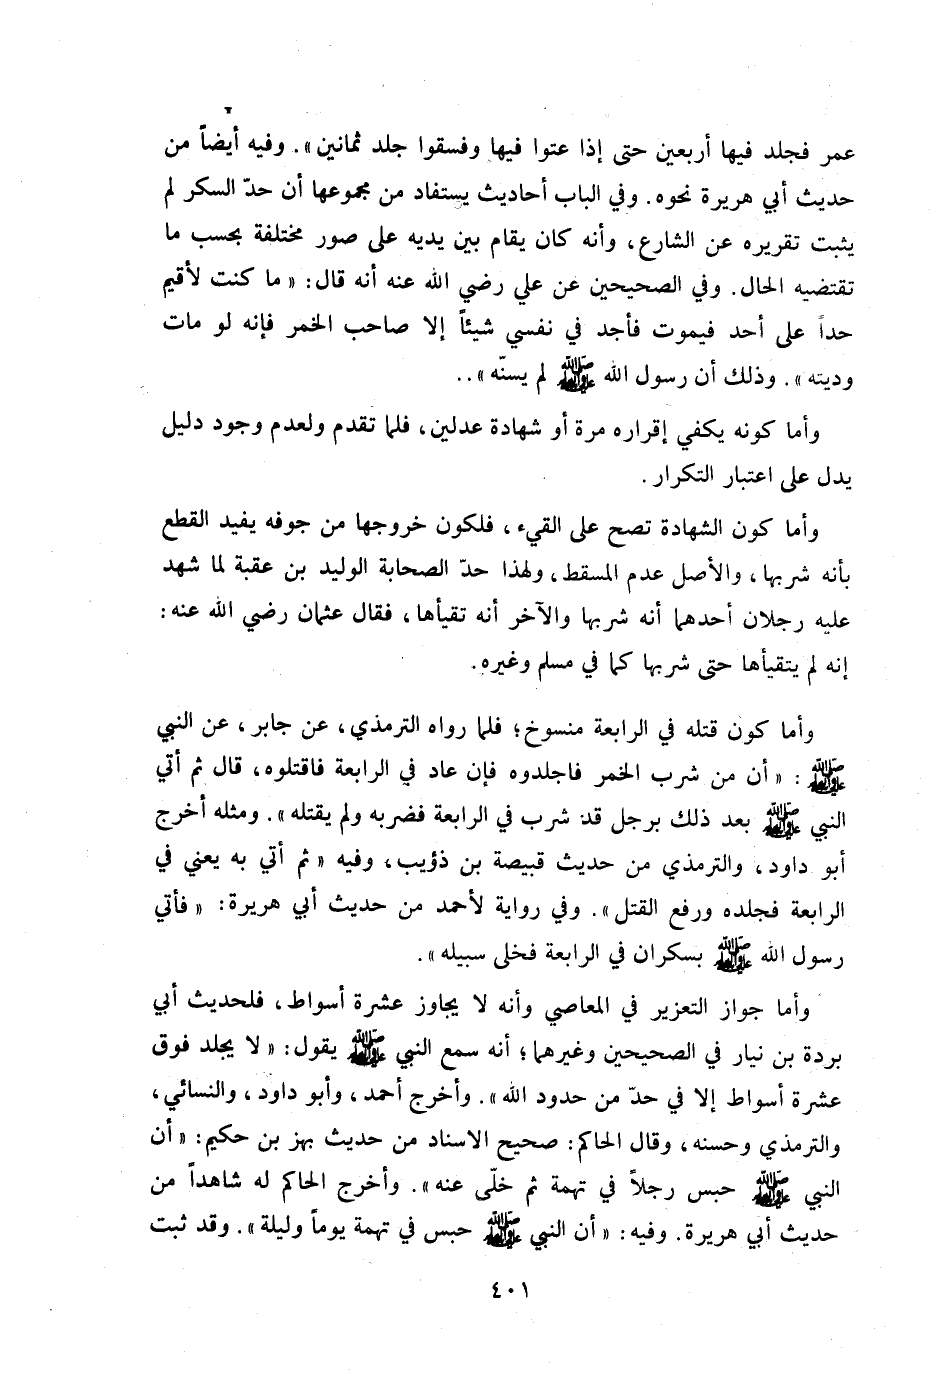 عمر فجلد فيها أربعين حتى إذا عتوا فيها وفسقوا جلد ثمانين». وفيه أيضاً من
حديث أبي هريرة نحوه. وفي الباب أحاديث يستفاد من مجموعها أن حدّ السكر لم
يثبت تقريره عن الشارع، وأنه كان يقام بين يديه على صور مختلفة بحسب ما
تقتضيه الحال. وفي الصحيحين عن علي رضي الله عنه أنه قال: « ما كنت لأقيم
حداً على أحد فيموت فأجد في نفسي شيئاً إلا صاحب الخمر فإنه لو مات
وديته». وذلك أن رسول الله ﷺ لم يسنّه»..
وأما كونه يكفي إقراره مرة أو شهادة عدلين، فلما تقدم ولعدم وجود دليل
يدل على اعتبار التكرار.
وأما كون الشهادة تصح على القيء، فلكون خروجها من جوفه يفيد القطع
بأنه شربها، والأصل عدم المسقط، ولهذا حدّ الصحابة الوليد بن عقبة لما شهد
عليه رجلان أحدهما أنه شربها والآخر أنه تقيأها، فقال عثمان رضي الله عنه:
إنه لم يتقيأها حتى شربها كما في مسلم وغيره.
وأما كون قتله في الرابعة منسوخ؛ فلما رواه الترمذي، عن جابر، عن النبي
ﷺ: « أن من شرب الخمر فاجلدوه فإن عاد في الرابعة فاقتلوه، قال ثم أتي
النبي ﷺ بعد ذلك برجل قد شرب في الرابعة فضربه ولم يقتله». ومثله أخرج
أبو داود، والترمذي من حديث قبيصة بن ذؤيب، وفيه « ثم أتي به يعني في
الرابعة فجلده ورفع القتل». وفي رواية لأحمد من حديث أبي هريرة: « فأتي
رسول الله ﷺ بسكران في الرابعة فخلى سبيله».
وأما جواز التعزير في المعاصي وأنه لا يجاوز عشرة أسواط، فلحديث أبي
بردة بن نيار في الصحيحين وغيرهما؛ أنه سمع النبي ﷺ يقول: « لا يجلد فوق
عشرة أسواط إلا في حدّ من حدود الله». وأخرج أحمد، وأبو داود، والنسائي،
والترمذي وحسنه، وقال الحاكم: صحيح الاسناد من حديث بهز بن حكيم: « أن
النبي ﷺ حبس رجلاً في تهمة ثم خلّى عنه». وأخرج الحاكم له شاهداً من
حديث أبي هريرة. وفيه: « أن النبي ﷺ حبس في تهمة يوماً وليلة». وقد ثبت
٤٠١